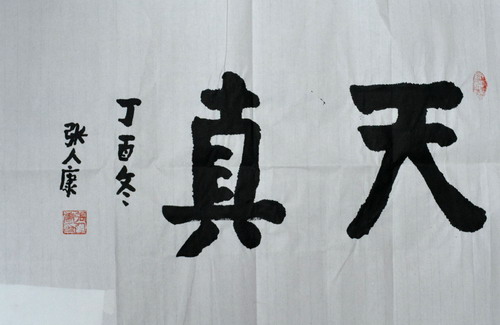 天真
丁酉冬
张人康